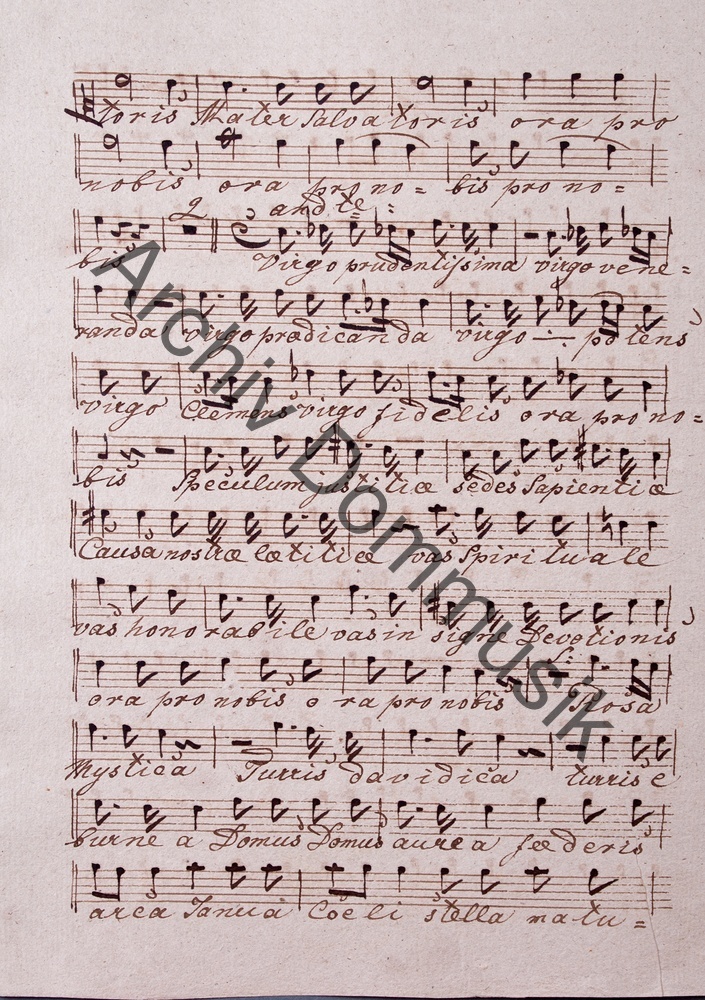 toris Mater Salvatoris ora pro
nobis ora pro no = bis pro no =
2 andte :
bis Virgo prudentissima virgo vene =
randa virgo prædicanda virgo -:- potens
virgo Clemens virgo fidelis ora pro no =
bis Speculum justitiæ sedes Sapientiæ
Causa nostræ lætitiæ vas Spirituale
vas honorabile vas insigne Devotionis
ora pro nobis ora pro nobis Rosa
Mystica Turris davidica turris e
burne a Domus Domus aurea fœderis
arca Janua Cœli stella matu =
Archiv Dommusik